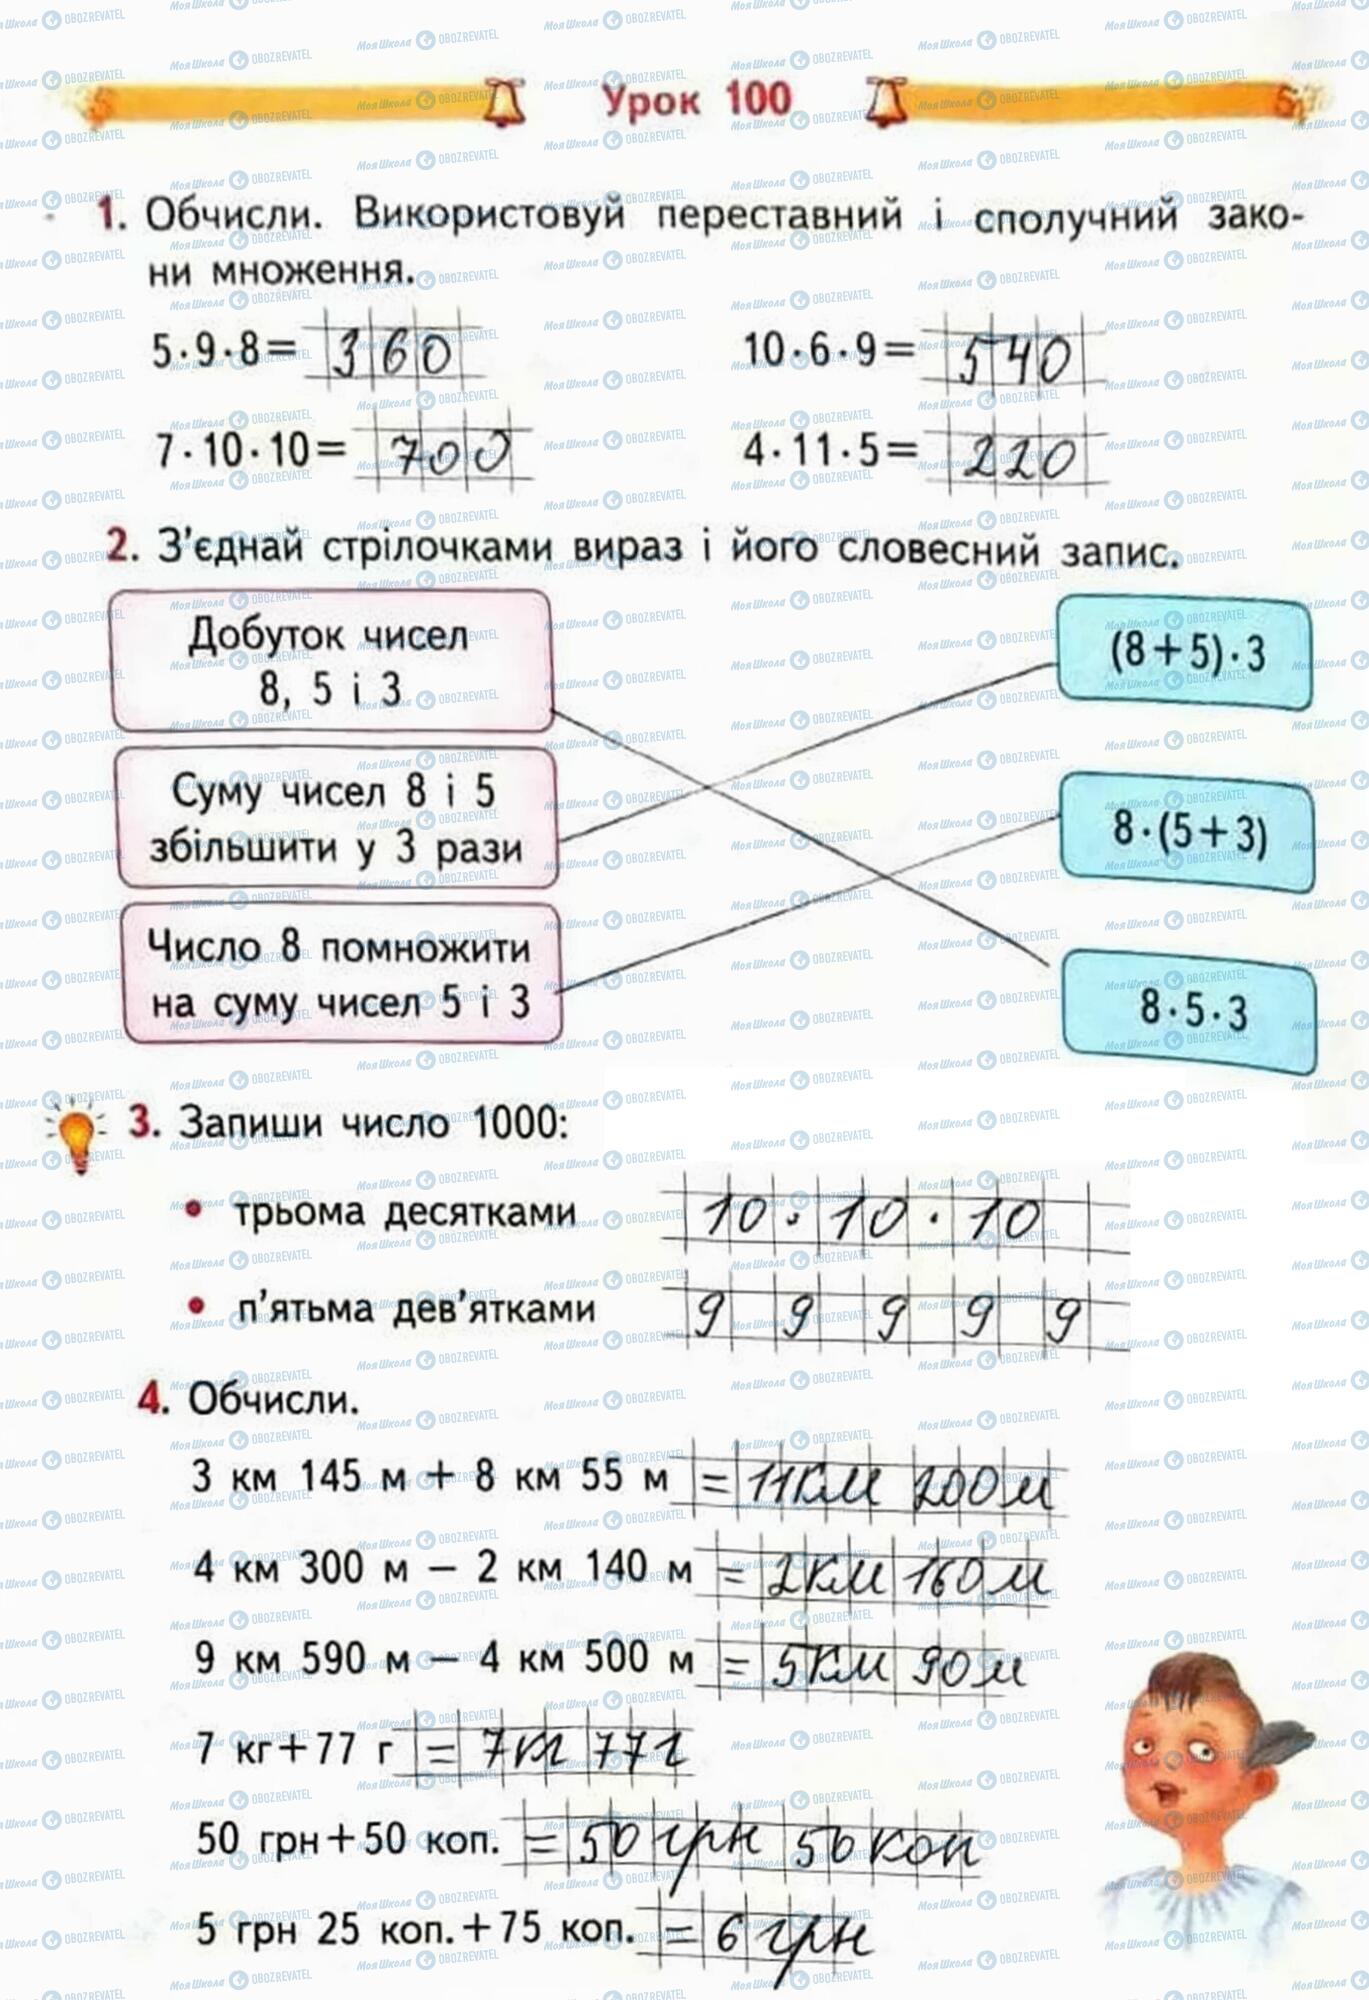 Урок 100
1. Обчисли. Використовуй переставний і сполучний зако-
ни множення.
5·9·8= 360
10·6·9= 540
7·10·10= 700
4·11·5= 220
2. З'єднай стрілочками вираз і його словесний запис.
Добуток чисел
8, 5 і 3
(8+5)·3
Суму чисел 8 і 5
збільшити у 3 рази
8·(5+3)
Число 8 помножити
на суму чисел 5 і 3
8·5·3
3. Запиши число 1000:
• трьома десятками 10·10·10
• п'ятьма дев'ятками 9 9 9 9 9
4. Обчисли.
3 км 145 м + 8 км 55 м = 11км 200м
4 км 300 м − 2 км 140 м = 2км 160м
9 км 590 м − 4 км 500 м = 5км 90м
7 кг+77 г = 7кг 77г
50 грн+50 коп. = 50грн 50коп
5 грн 25 коп.+75 коп. = 6грн
МояШкола OBOZREVATEL